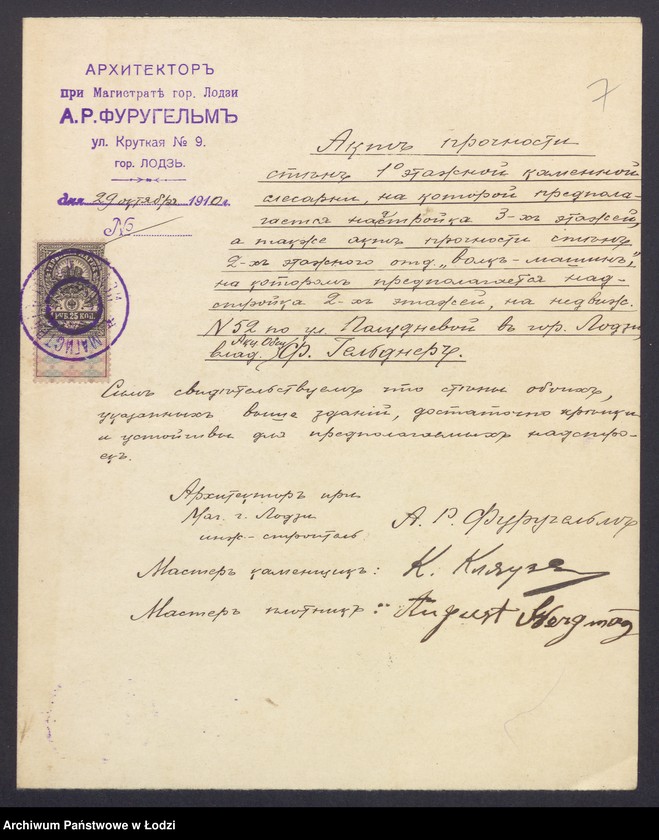 АРХИТЕКТОРЪ
при Магистратѣ гор. Лодзи
А. Р. ФУРУГЕЛЬМЪ
ул. Круткая № 9.
гор. ЛОДЗЬ.
дня 29 октября 1910 г.
№
7
Актъ прочности
стѣнъ 1º этажной каменной
слесарни, на которой предпола-
гается надстройка 3-хъ этажей,
а также актъ прочности стѣнъ
2-хъ этажного отд. „волкъ-машинъ",
на которомъ предполагается над-
стройка 2-хъ этажей, на недвиж.
N 52 по ул. Полудневой въ гор. Лодзи,
влад. Акц. Общ. Ф. Гельднеръ.
Симъ свидѣтельствуемъ что стѣны обоихъ,
указанныхъ выше зданій, достаточно крѣпки
и устойчивы для предполагаемыхъ надстро-
екъ.
Архитекторъ при
Маг. г. Лодзи
инж.-строитель
А. Р. Фуругельмъ
Мастеръ каменщикъ: К. Кляузе
Мастеръ плотникъ: August
РУБ. 25 КОП.
Archiwum Państwowe w Łodzi